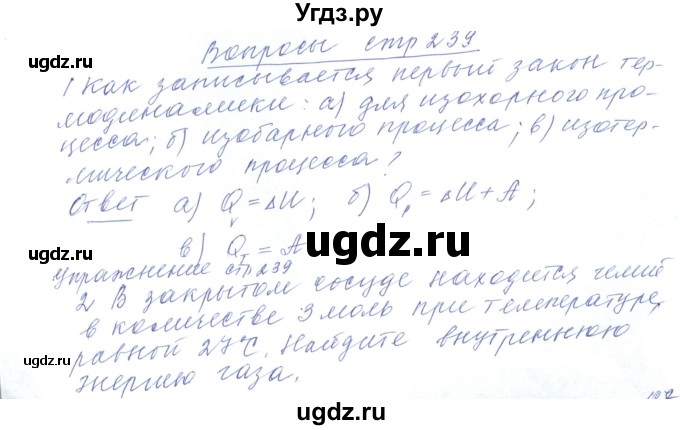 Угдз.ру
Вопросы стр 239
1 Как записывается первый закон тер-
модинамики: а) для изохорного про-
цесса; б) изобарного процесса; в) изотер-
мического процесса?
Ответ а) Qv = ΔU; б) Qp = ΔU + A;
в) QT = A
Упражнение стр 239
2 В закрытом сосуде находится гелий
в количестве 3 моль при температуре,
равной 27°C. Найдите внутреннюю
энергию газа.
ugdz.ru
ugdz.ru
ugdz.ru
ugdz.ru
ugdz.ru
ugdz.ru
ugdz.ru
ugdz.ru